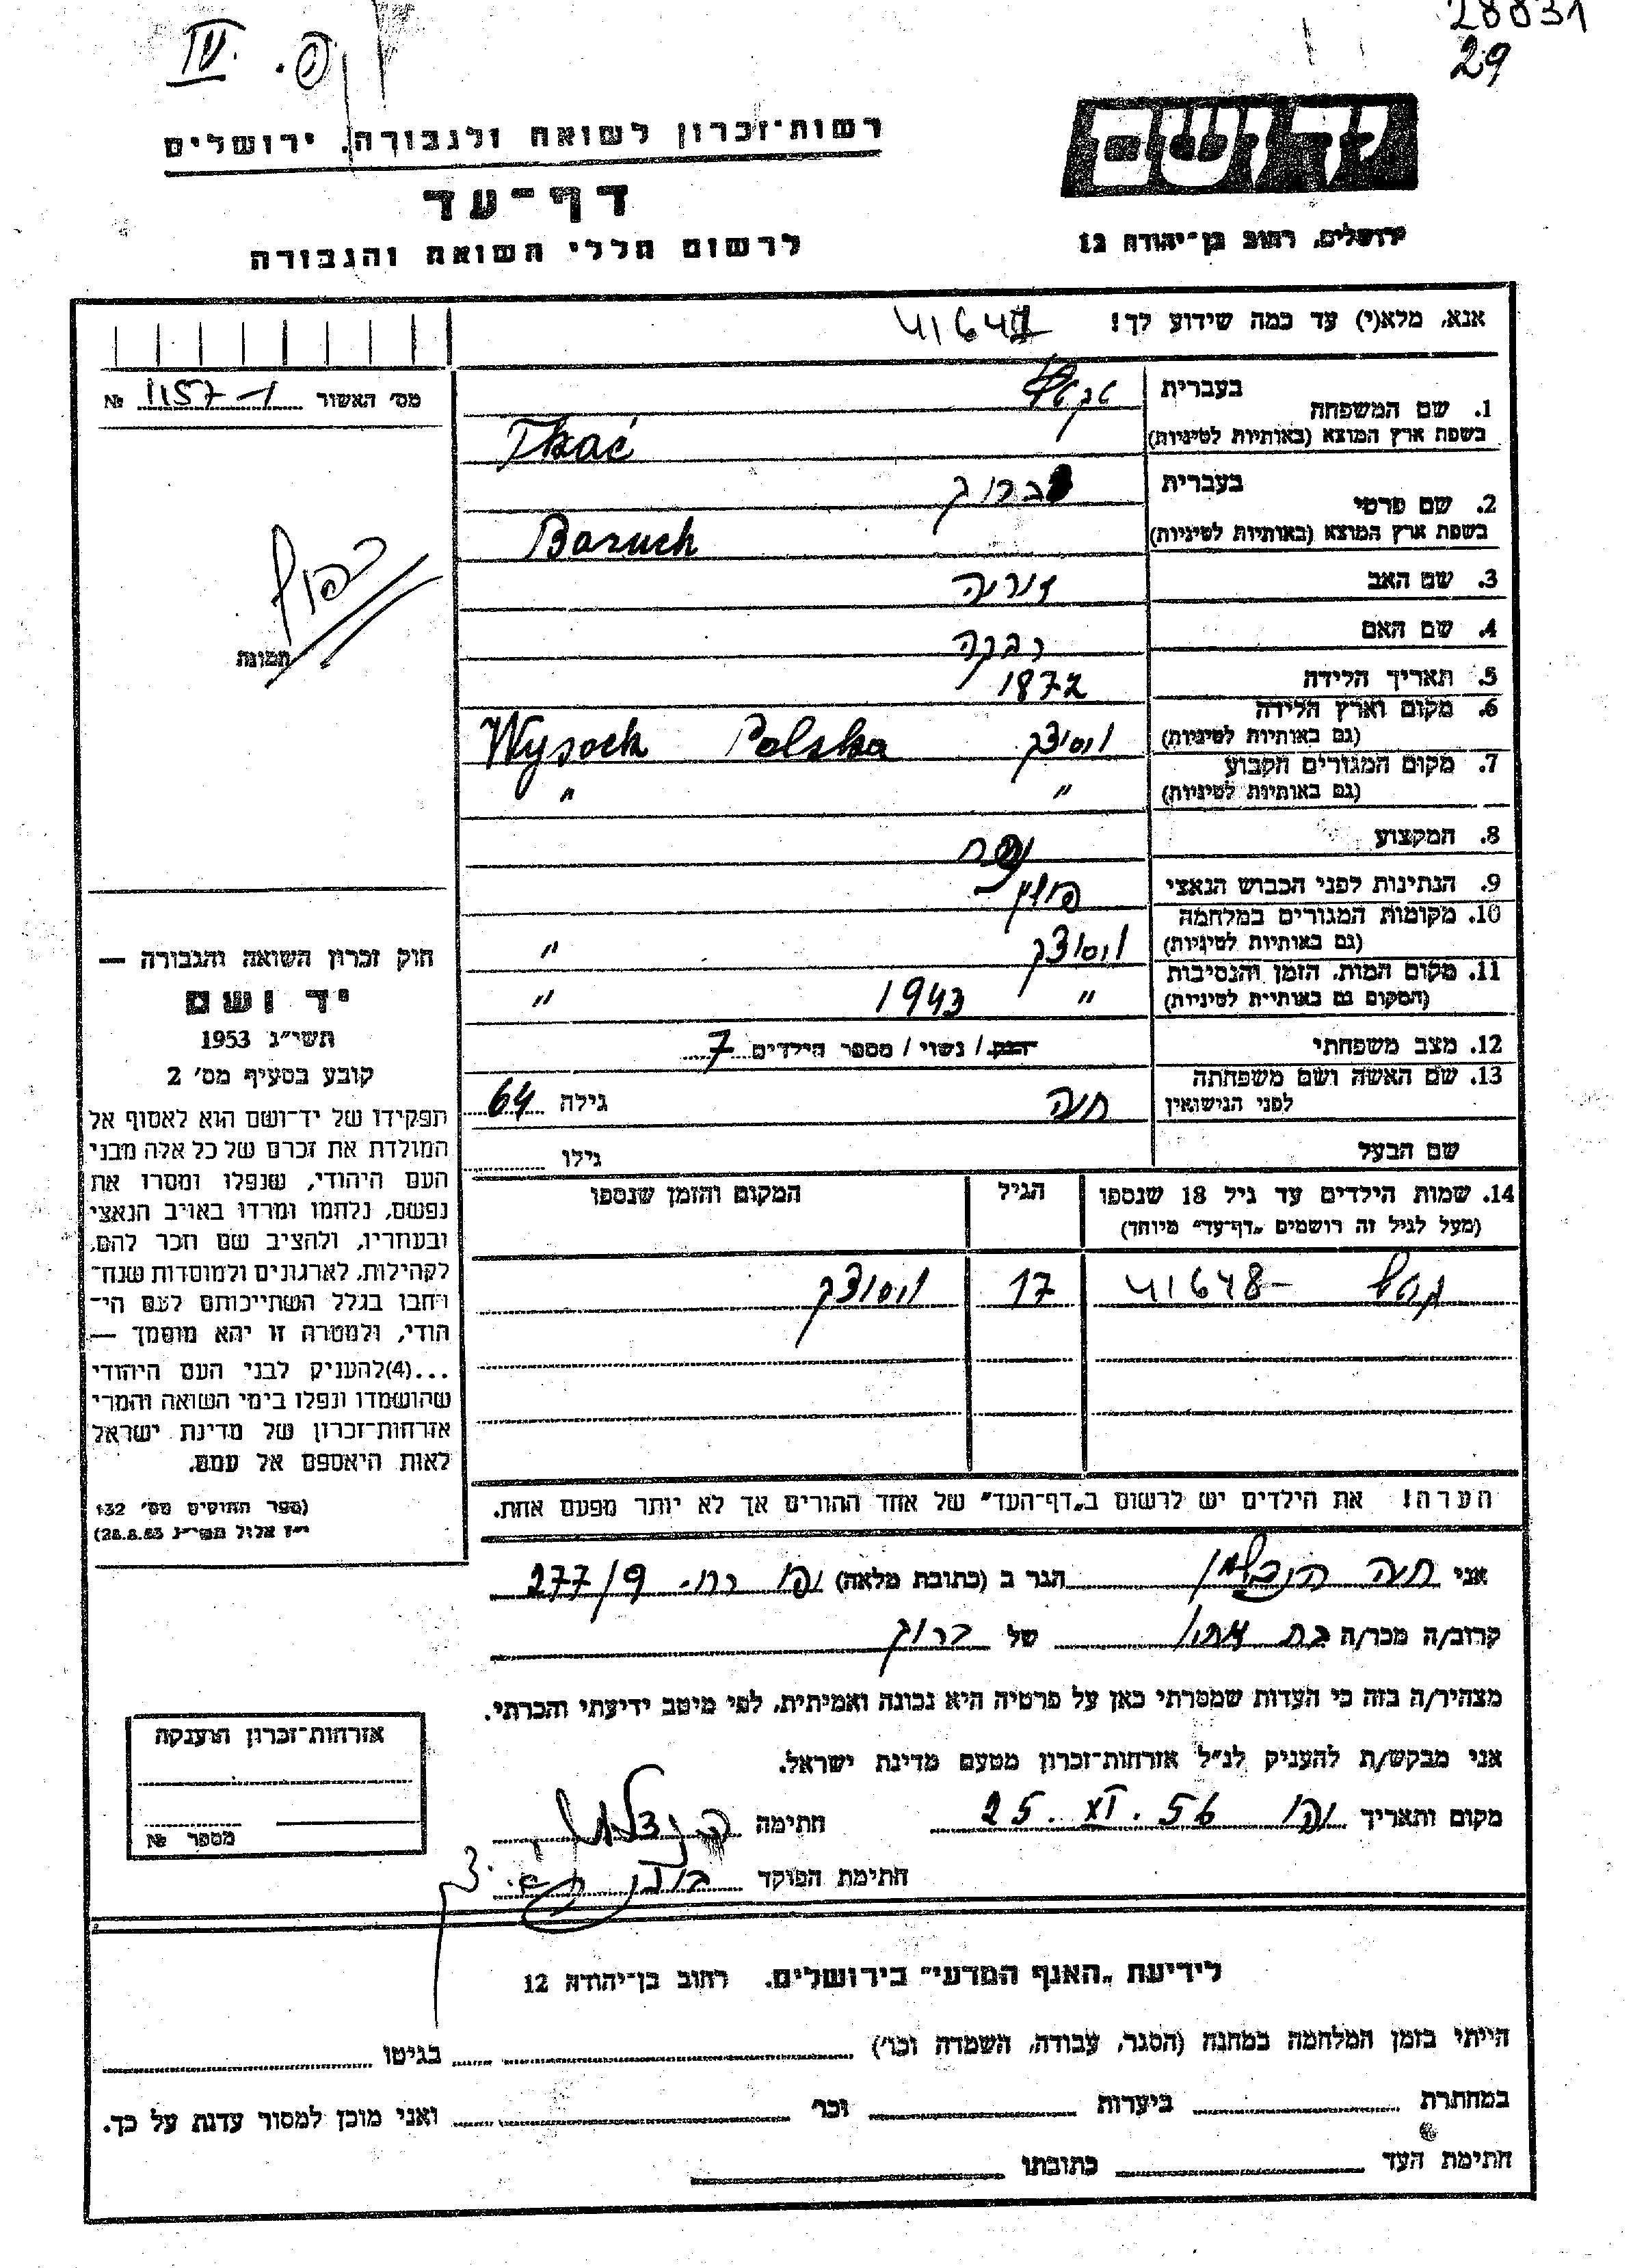 28031
29
IV. פ.
רשות־זכרון לשואה ולגבורה, ירושלים
דף־עד
לרשום חללי השואה והגבורה
יד ושם
ירושלים, רחוב בן־יהודה 12
אנא, מלא(י) עד כמה שידוע לך! 41647
מס' האשור 1157-1 №
1. שם המשפחה בעברית
בשפת ארץ המוצא (באותיות לטיניות) Tkač
2. שם פרטי בעברית ברוך
בשפת ארץ המוצא (באותיות לטיניות) Baruch
3. שם האב
4. שם האם רבקה
5. תאריך הלידה 1872
6. מקום וארץ הלידה
(גם באותיות לטיניות) ווסוצק Polska Wysock
7. מקום המגורים הקבוע
(גם באותיות לטיניות) " "
8. המקצוע
9. הנתינות לפני הכבוש הנאצי פולין
10. מקומות המגורים במלחמה
(גם באותיות לטיניות) ווסוצק "
11. מקום המות, הזמן והנסיבות
(המקום גם באותיות לטיניות) " 1943 "
12. מצב משפחתי רווק / נשוי / מספר הילדים 7
13. שם האשה ושם משפחתה
לפני הנישואין חיה גילה 64
שם הבעל גילו
14. שמות הילדים עד גיל 18 שנספו הגיל המקום והזמן שנספו
(מעל לגיל זה רושמים „דף־עד" מיוחד)
41648- 17 ווסוצק
הערה! את הילדים יש לרשום ב„דף־העד" של אחד ההורים אך לא יותר מפעם אחת.
תמונה
חוק זכרון השואה והגבורה —
יד ושם
תשי"ג 1953
קובע בסעיף מס' 2
תפקידו של יד־ושם הוא לאסוף אל
המולדת את זכרם של כל אלה מבני
העם היהודי, שנפלו ומסרו את
נפשם, נלחמו ומרדו באויב הנאצי
ובעוזריו, ולהציב שם וזכר להם,
לקהילות, לארגונים ולמוסדות שנח־
רחבו בגלל השתייכותם לעם הי־
הודי, ולמטרה זו יהא מוסמך —
...(4)להעניק לבני העם היהודי
שהושמדו ונפלו בימי השואה והמרי
אזרחות־זכרון של מדינת ישראל
לאות היאספם אל עמם.
(ספר החוקים מס' 132
י"ז אלול תשי"ג 28.8.53)
אני חיה הנדלמן הגר ב (כתובת מלאה) 277/9
קרוב/ה מכר/ה בת של ברוך
מצהיר/ה בזה כי העדות שמסרתי כאן על פרטיה היא נכונה ואמיתית, לפי מיטב ידיעתי והכרתי.
אני מבקש/ת להעניק לנ"ל אזרחות־זכרון מטעם מדינת ישראל.
מקום ותאריך 25. XI. 56 חתימה
חתימת הפוקד
אזרחות־זכרון הוענקה
מספר №
לידיעת „האגף המדעי" בירושלים, רחוב בן־יהודה 12
הייתי בזמן המלחמה במחנה (הסגר, עבודה, השמדה וכו') בגיטו
במחתרת ביערות וכו' ואני מוכן למסור עדות על כך.
חתימת העד כתובתו